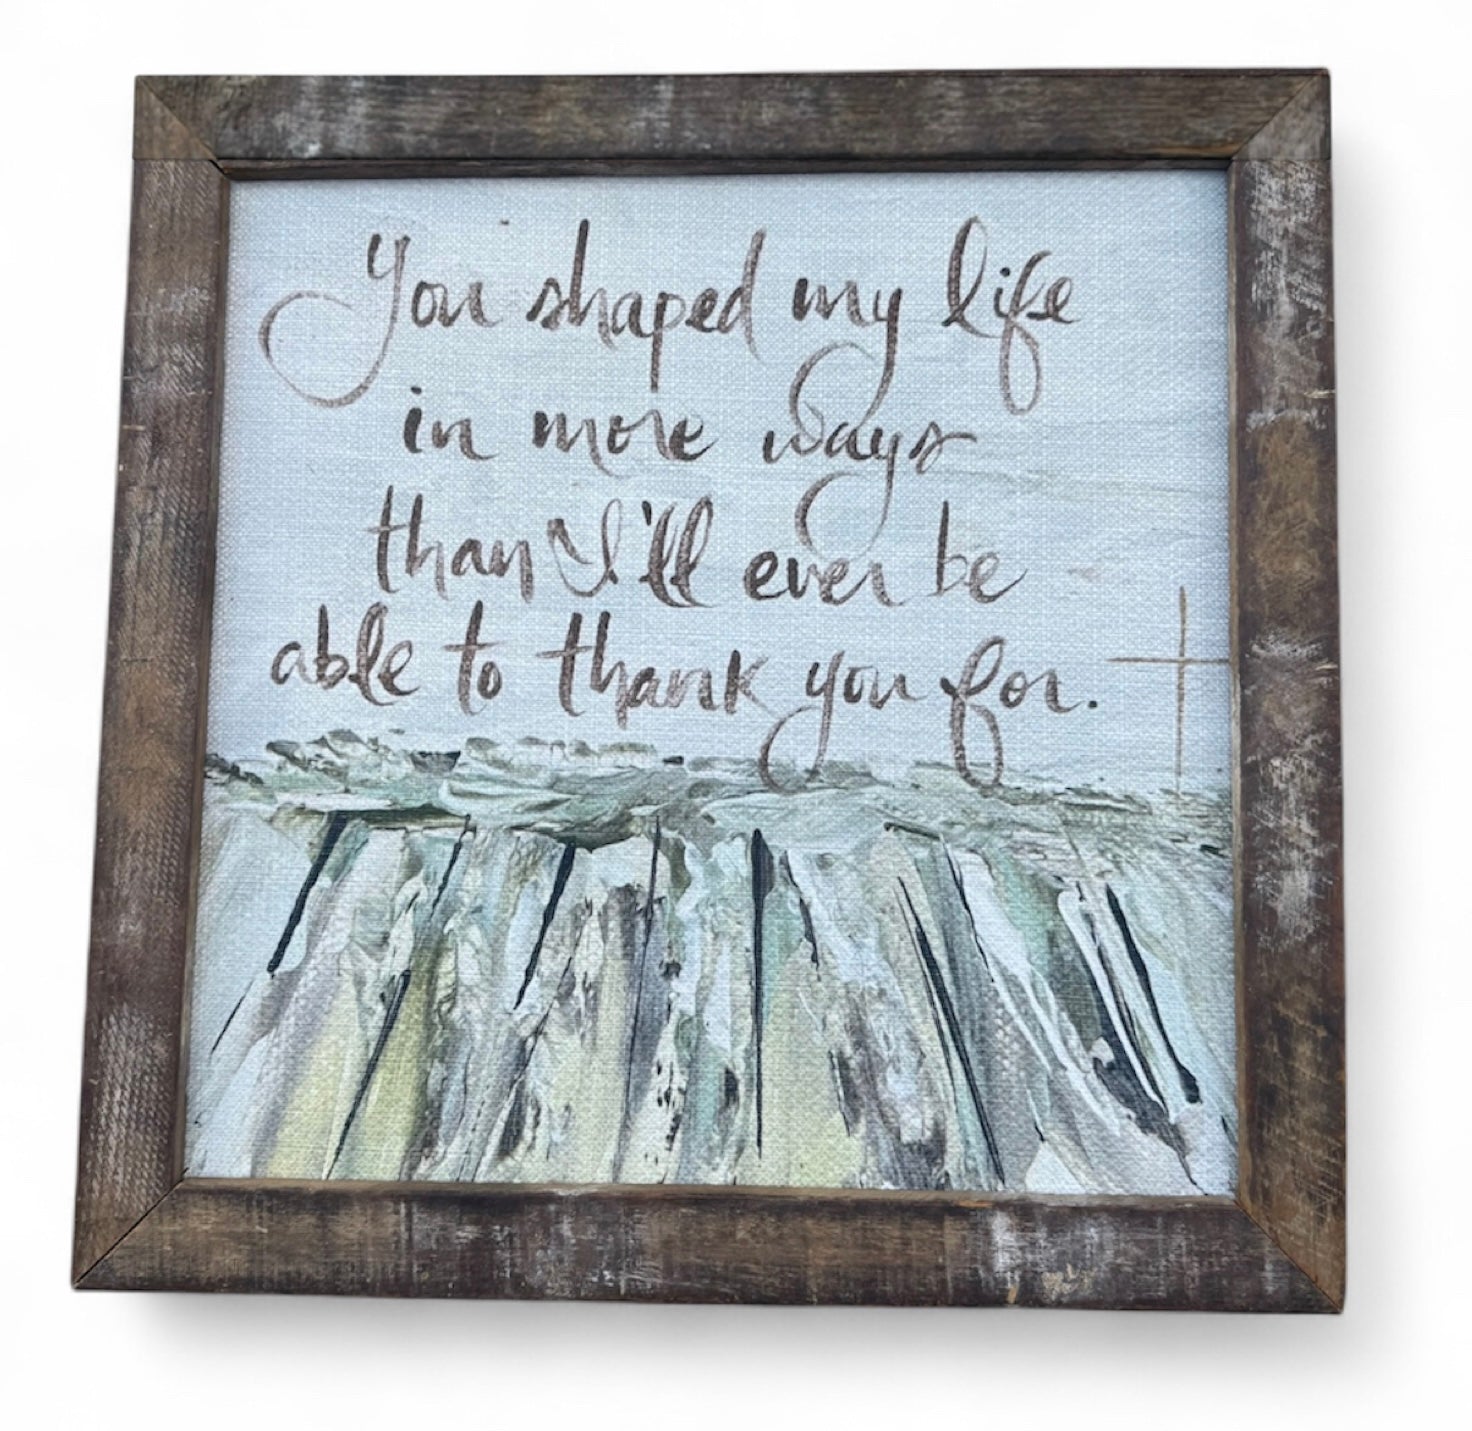 You shaped my life
in more ways
than I'll ever be
able to thank you for.